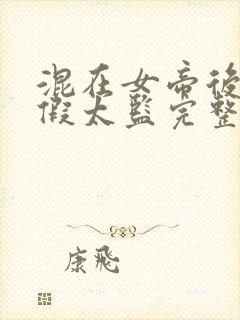 混在女帝後
假太監完整
康飛